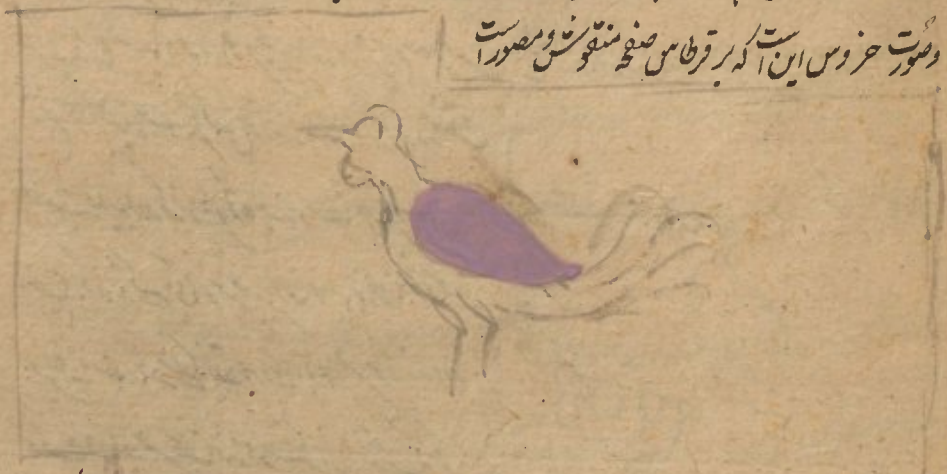 وصورت خروس این است که بر قرطاس صفحه منقوش و مصور است